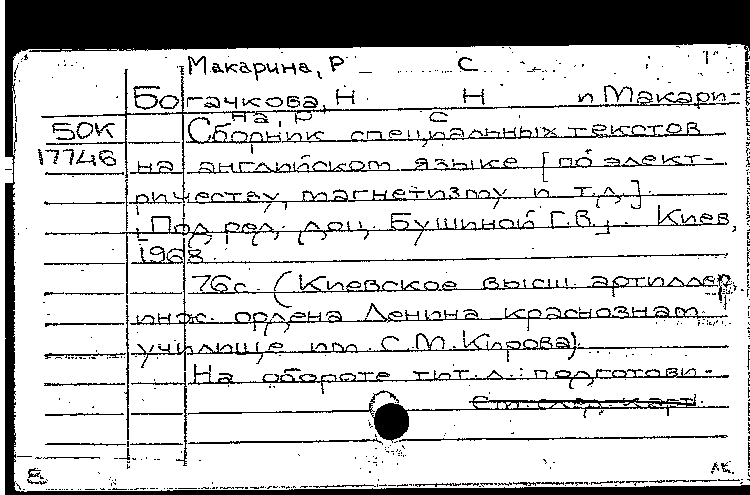 Макарина, Р С
Богачкова, Н Н и Макари-
на, Р С
50К Сборник специальных текстов
17746 на английском языке [по элект-
ричеству, магнетизму и т.д.].
[Под ред. доц. Бушиной Г.В.]. Киев,
1968.
76с. (Киевское высш. артиллер.
инж. ордена Ленина краснознам.
училище им. С.М.Кирова).
На обороте тит. л.: подготови-
См. след. карт.
8 АК